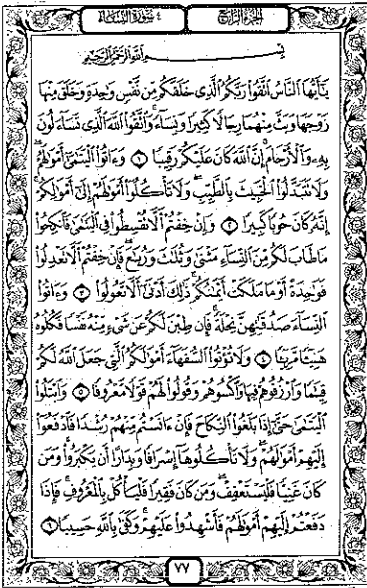 الجزء الرابع
٤ سورة النساء
بسم الله الرحمن الرحيم
يَٰٓأَيُّهَا ٱلنَّاسُ ٱتَّقُوا۟ رَبَّكُمُ ٱلَّذِى خَلَقَكُم مِّن نَّفْسٍ وَٰحِدَةٍ وَخَلَقَ مِنْهَا
زَوْجَهَا وَبَثَّ مِنْهُمَا رِجَالًا كَثِيرًا وَنِسَآءً ۚ وَٱتَّقُوا۟ ٱللَّهَ ٱلَّذِى تَسَآءَلُونَ
بِهِۦ وَٱلْأَرْحَامَ ۚ إِنَّ ٱللَّهَ كَانَ عَلَيْكُمْ رَقِيبًا ١ وَءَاتُوا۟ ٱلْيَتَٰمَىٰٓ أَمْوَٰلَهُمْ ۖ
وَلَا تَتَبَدَّلُوا۟ ٱلْخَبِيثَ بِٱلطَّيِّبِ ۖ وَلَا تَأْكُلُوٓا۟ أَمْوَٰلَهُمْ إِلَىٰٓ أَمْوَٰلِكُمْ ۚ
إِنَّهُۥ كَانَ حُوبًا كَبِيرًا ٢ وَإِنْ خِفْتُمْ أَلَّا تُقْسِطُوا۟ فِى ٱلْيَتَٰمَىٰ فَٱنكِحُوا۟
مَا طَابَ لَكُم مِّنَ ٱلنِّسَآءِ مَثْنَىٰ وَثُلَٰثَ وَرُبَٰعَ ۖ فَإِنْ خِفْتُمْ أَلَّا تَعْدِلُوا۟
فَوَٰحِدَةً أَوْ مَا مَلَكَتْ أَيْمَٰنُكُمْ ۚ ذَٰلِكَ أَدْنَىٰٓ أَلَّا تَعُولُوا۟ ٣ وَءَاتُوا۟
ٱلنِّسَآءَ صَدُقَٰتِهِنَّ نِحْلَةً ۚ فَإِن طِبْنَ لَكُمْ عَن شَىْءٍ مِّنْهُ نَفْسًا فَكُلُوهُ
هَنِيٓـًٔا مَّرِيٓـًٔا ٤ وَلَا تُؤْتُوا۟ ٱلسُّفَهَآءَ أَمْوَٰلَكُمُ ٱلَّتِى جَعَلَ ٱللَّهُ لَكُمْ
قِيَٰمًا وَٱرْزُقُوهُمْ فِيهَا وَٱكْسُوهُمْ وَقُولُوا۟ لَهُمْ قَوْلًا مَّعْرُوفًا ٥ وَٱبْتَلُوا۟
ٱلْيَتَٰمَىٰ حَتَّىٰٓ إِذَا بَلَغُوا۟ ٱلنِّكَاحَ فَإِنْ ءَانَسْتُم مِّنْهُمْ رُشْدًا فَٱدْفَعُوٓا۟
إِلَيْهِمْ أَمْوَٰلَهُمْ ۖ وَلَا تَأْكُلُوهَآ إِسْرَافًا وَبِدَارًا أَن يَكْبَرُوا۟ ۚ وَمَن
كَانَ غَنِيًّا فَلْيَسْتَعْفِفْ ۖ وَمَن كَانَ فَقِيرًا فَلْيَأْكُلْ بِٱلْمَعْرُوفِ ۚ فَإِذَا
دَفَعْتُمْ إِلَيْهِمْ أَمْوَٰلَهُمْ فَأَشْهِدُوا۟ عَلَيْهِمْ ۚ وَكَفَىٰ بِٱللَّهِ حَسِيبًا ٦
٧٧